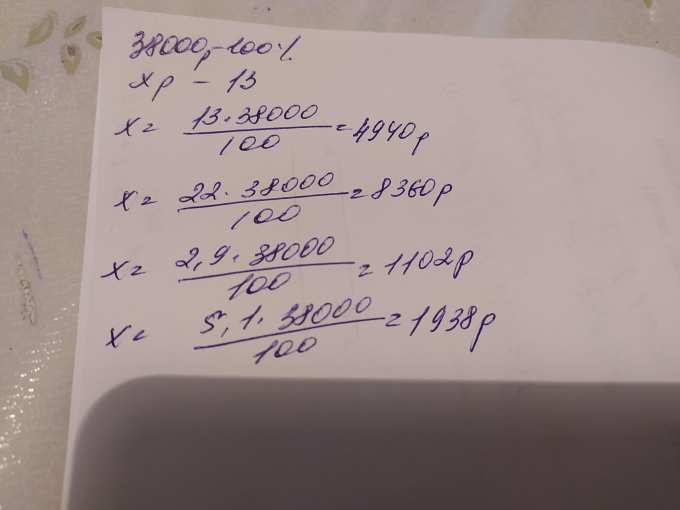 38000р-100%
xр - 13
x = 13·38000/100 = 4940р
x = 22·38000/100 = 8360р
x = 2,9·38000/100 = 1102р
x = 5,1·38000/100 = 1938р